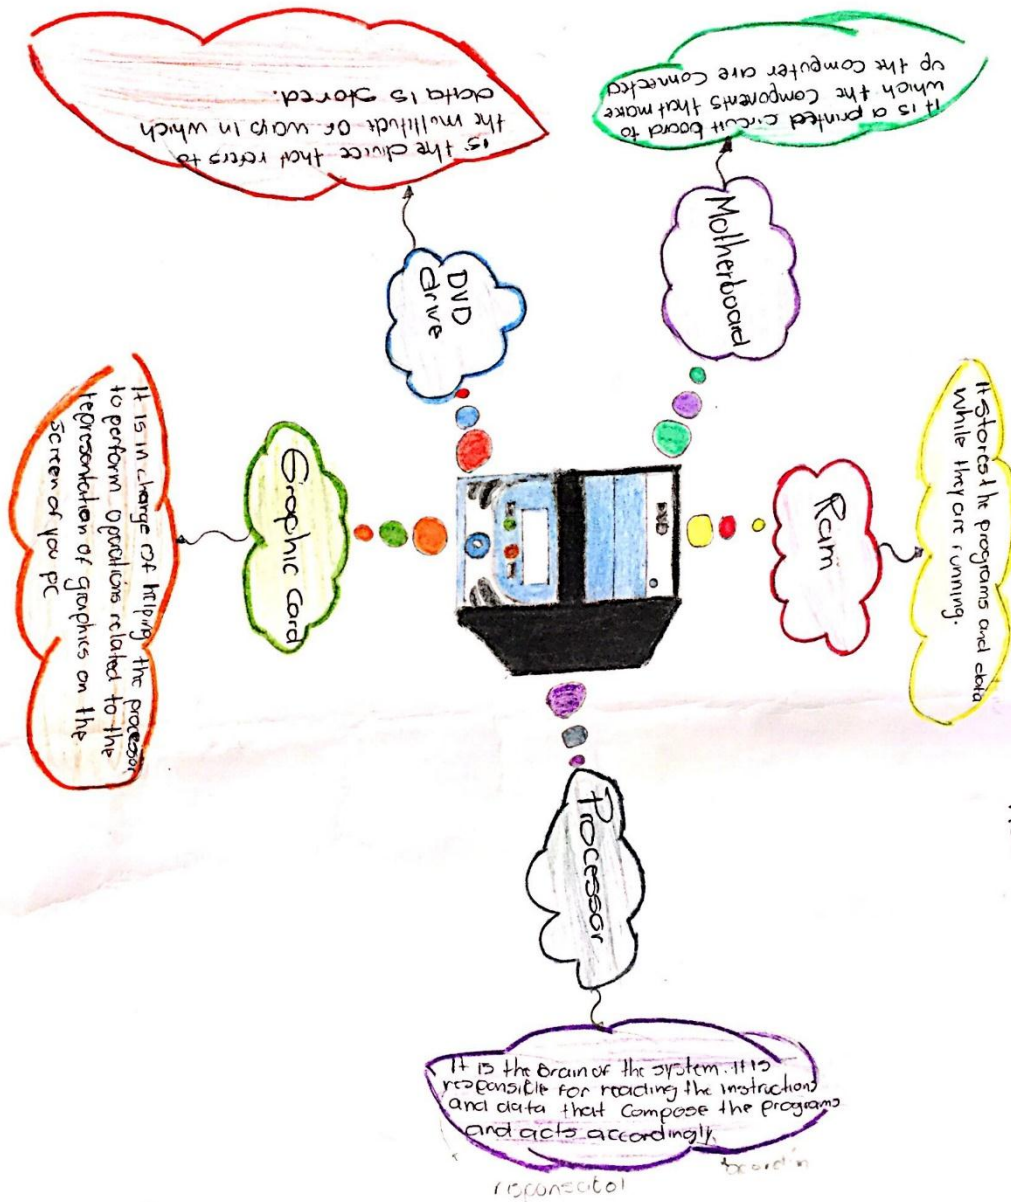 is the divice that refers to
the multitudt of ways in which
data is stored.
DVD
drive
It is a printed circuit board to
which the Components that make
up the Computer are Connected
Motherboard
It Stores the programs and data
while they are running.
Ram
Graphic Card
It is in charge of helping the processor
to perform oprations related to the
representation of graphics on the
Screen of you PC
Processor
It is the Brain of the system. It is
responsible for reading the instructions
and data that Compose the programs
and acts accordingly.